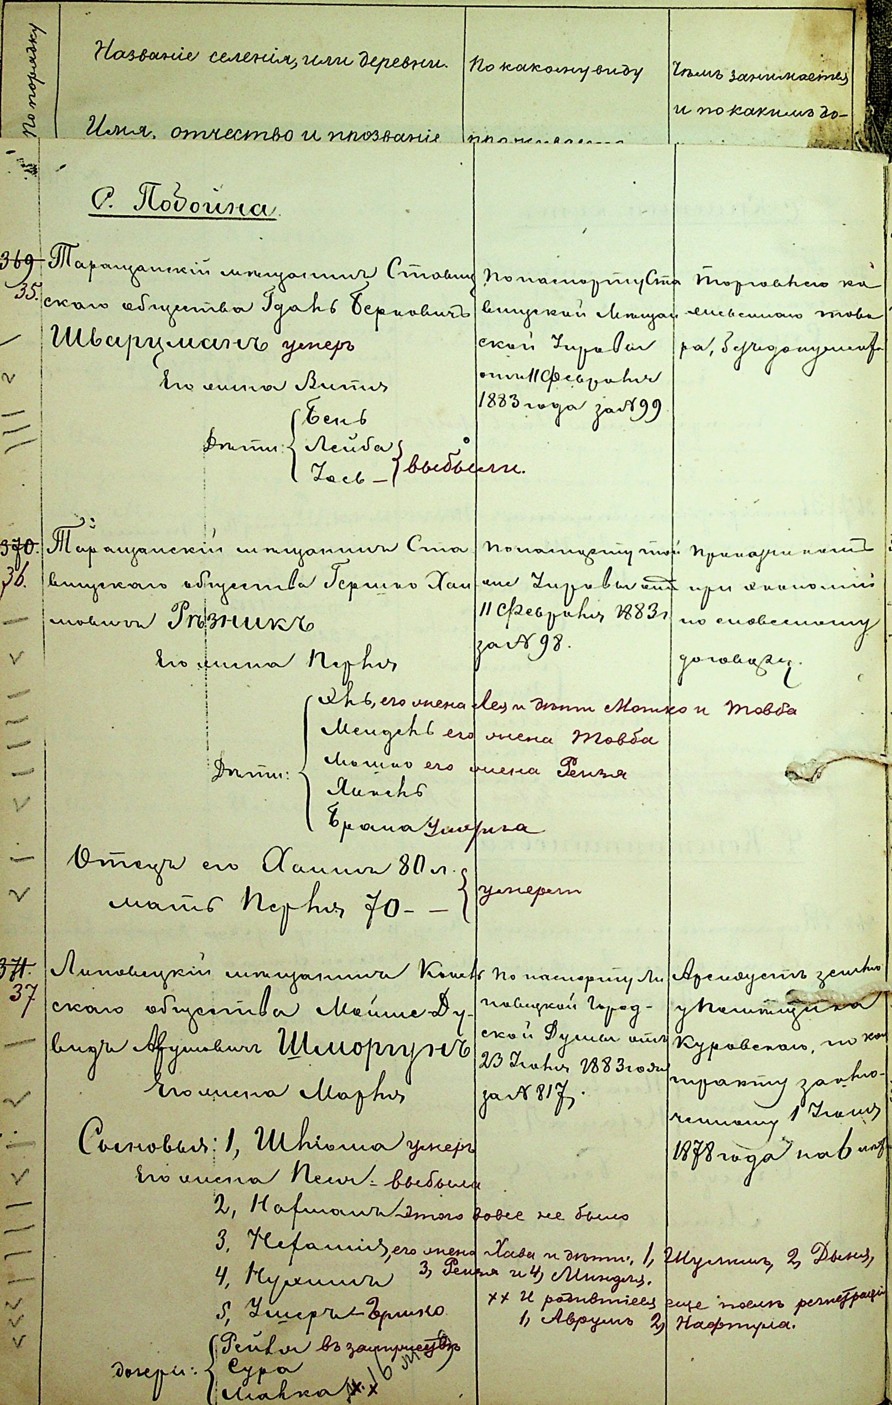 По порядку
Названіе селенія, или деревни.
Имя, отчество и прозваніе
По какому виду
Чѣмъ занимается
и по какимъ до-
С. Подойна
369
35.
Таращанскій мѣщанинъ Ставищ
скаго общества Гданъ Берковичъ
Шварцманъ умеръ
Его жена Витя
Дѣти:
Бень
Лейба
Іось – выбыли.
По паспорту Ста
вищской Мѣщан
ской Управы
отъ 11 Февраля
1883 года за № 99
370.
36.
Таращанскій мѣщанинъ Ста
вищскаго общества Гершко Хаи
мовичъ Рѣзникъ
Его жена Перля
Дѣти:
его жена Лея и дѣти Мошко и Товба
Мендель его жена Товба
Мошко его жена Рейзя
Брана умерла
Отецъ его Хаимъ 80 л.
мать Перля 70 – –
умерли
По паспорту той
же Управы отъ
11 Февраля 1883 г
за № 98.
при экономіи
по словесному
договору.
371.
37
Липовецкій мѣщанинъ
скаго общества Мойше Ду-
видъ Шморгунъ
Его жена Марля
Сыновья: 1, Шлiома умеръ
Его жена Песя – выбыла
2, Нафтанъ этого вовсе не было
3, его жена Хава и дѣти: 1, Шулимъ, 2, Двыня,
3, Рейзя и 4, Миндля.
4, Нухимъ
5, Ушеръ – Гершко
×× и родившіеся еще послѣ регистраціи
1, Аврумъ 2, Нафтула.
дочери:
Рейзя въ замужествѣ
Сура
Манка ××
По паспорту Ли
повецкой Город-
ской Думы отъ
23 Іюня 1883 года
за № 817.
Арендуетъ землю
у помѣщика
Куровскаго, по кон
тракту заклю-
ченному 1 Іюня
1878 года на 6 лѣт